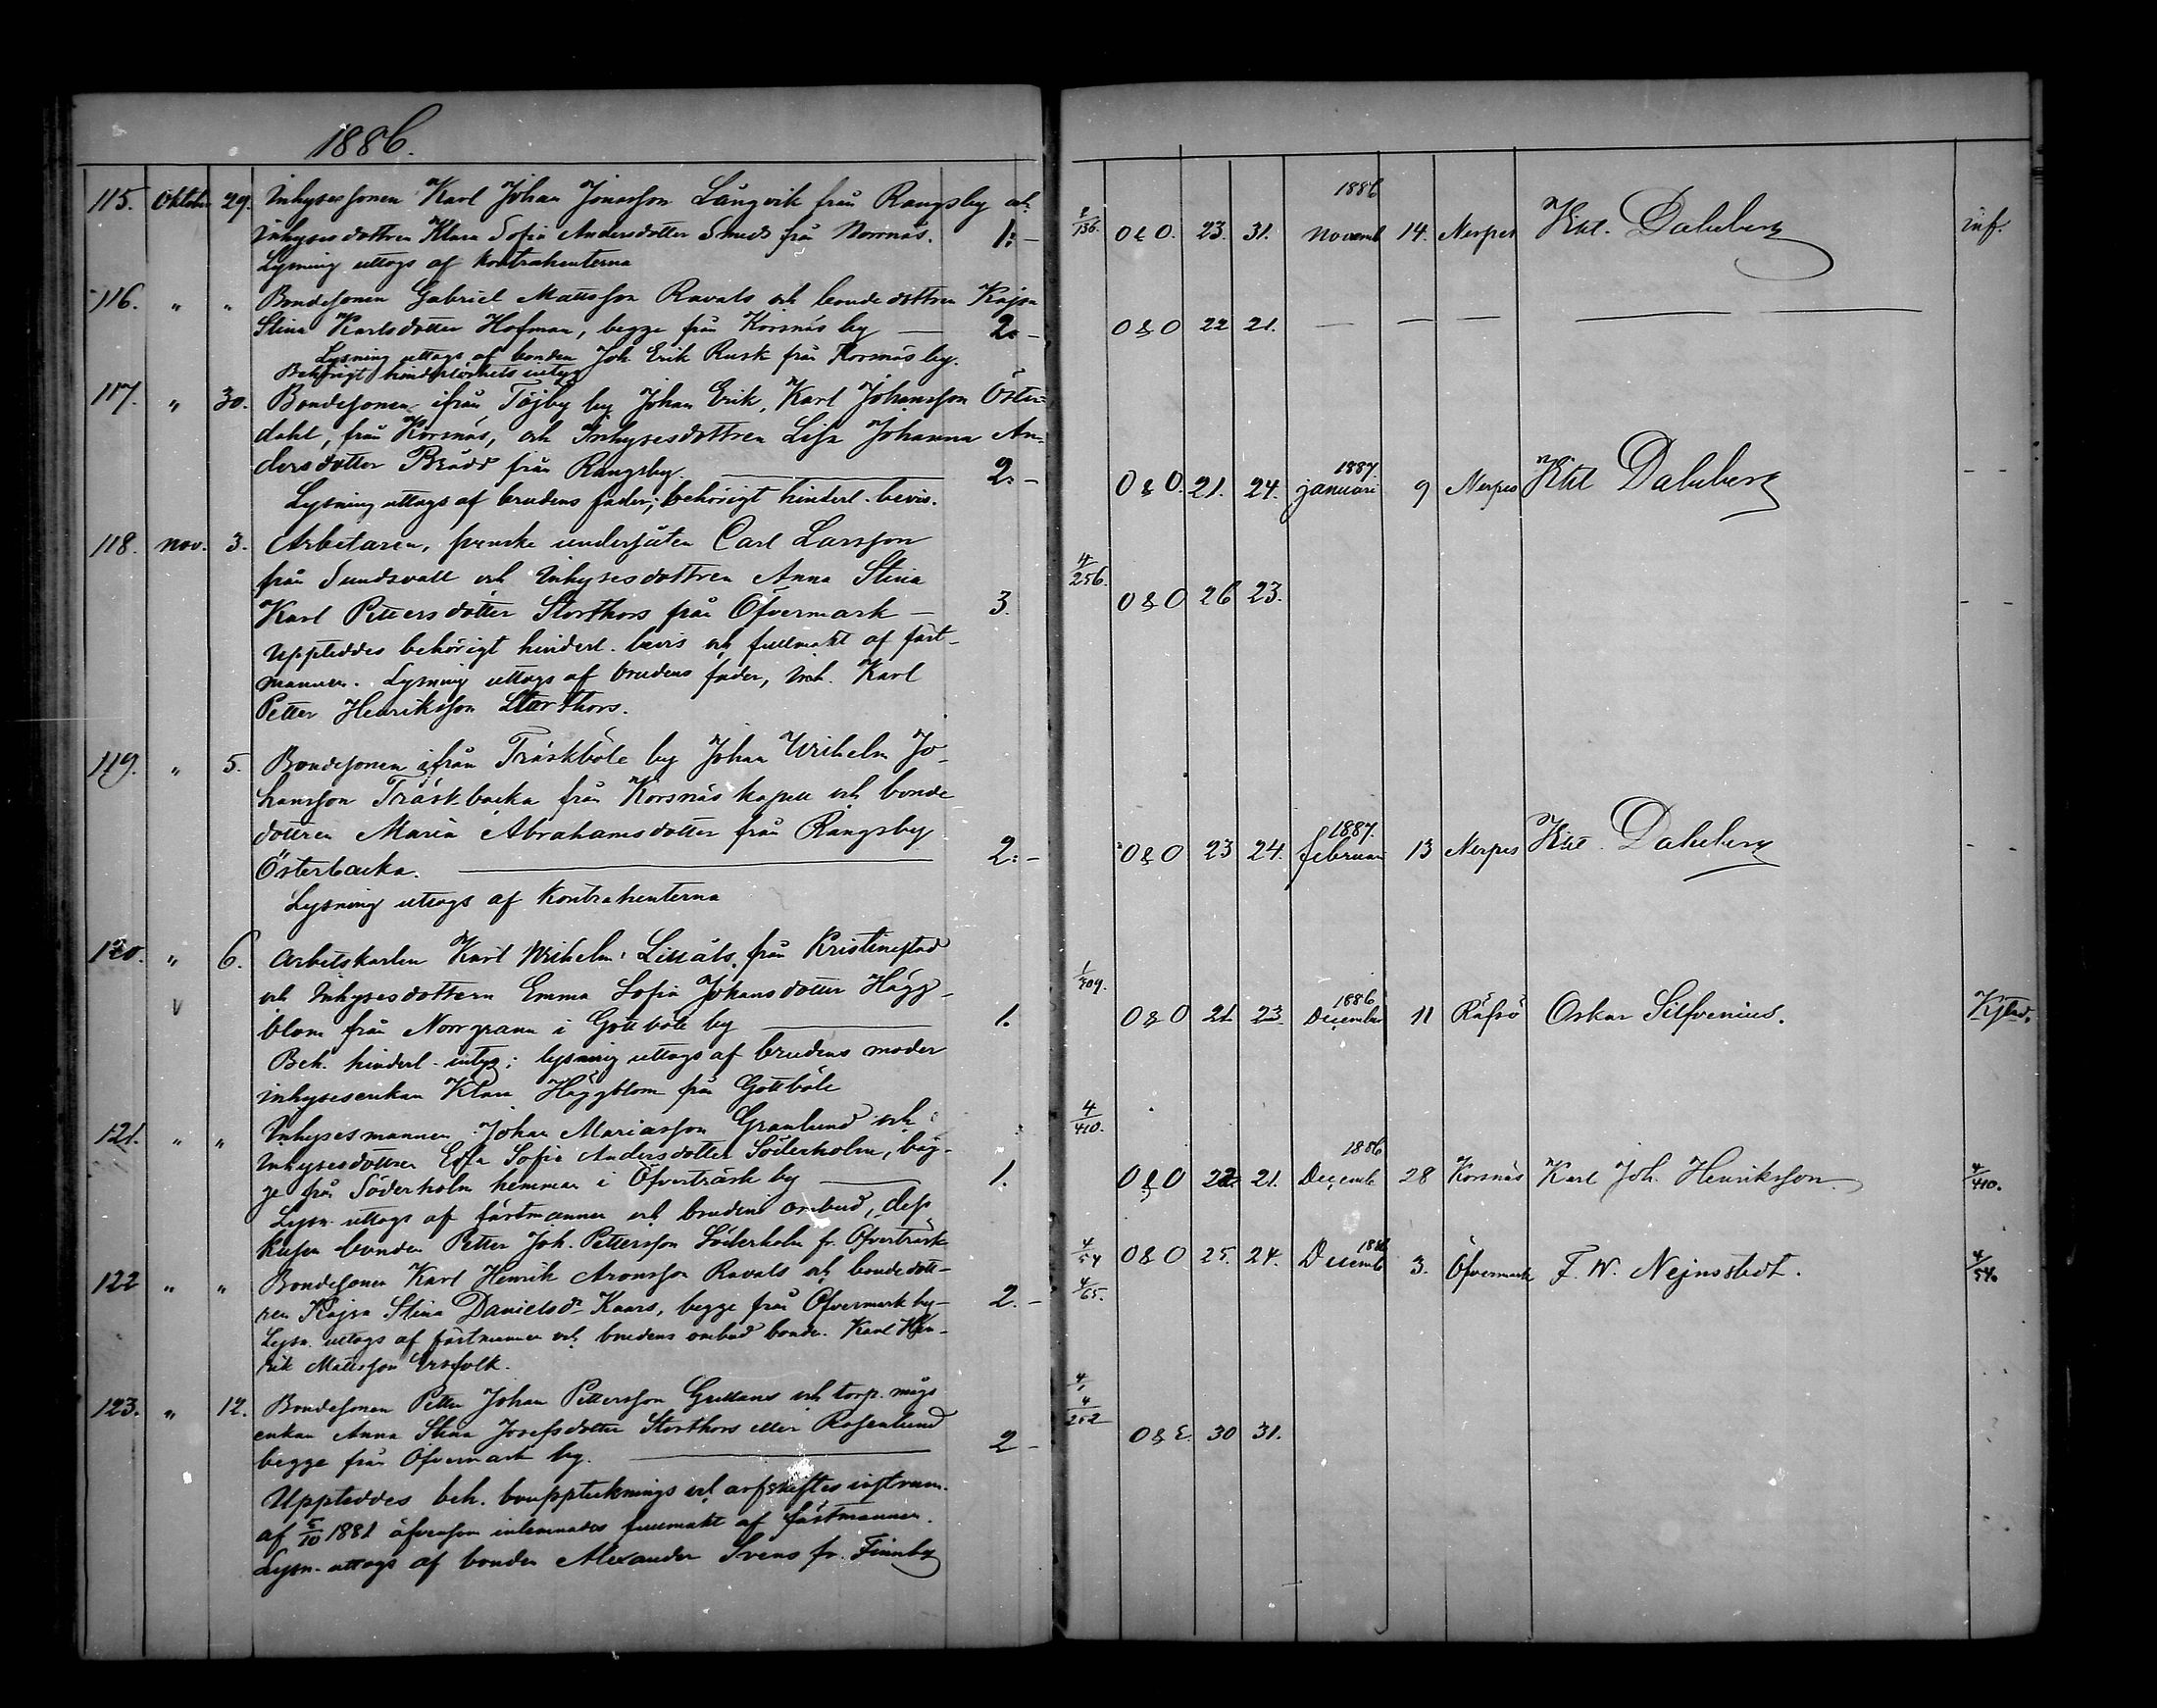 1886.
115. Oktober 29. Inhysessonen Karl Johan Jonasson Långvik från Rangsby och
Inhysesdottren Klara Sofia Andersdotter Smeds från Norrnäs. 1:-
Lysning uttogs af kontrahenterna
116. " " Bondesonen Gabriel Mattsson Ravals och bondedottren Kajsa
Stina Karlsdotter Hofman, begge från Korsnäs by — 2.-
Lysning uttogs af bonden Joh. Erik Rusk från Korsnäs by.
Behörigt hinderlöshets intyg
117. " 30. Bondesonen ifrån Töjby by Johan Erik, Karl Johansson Öster-
dahl, från Korsnäs, och Inhysesdottren Lisa Johanna An-
dersdotter Brådd från Rangsby. — 2:-
Lysning uttogs af brudens fader; behörigt hinderl. bevis.
118. Nov. 3. Arbetaren, svenske undersåten Carl Larsson
från Sundsvall och Inhysesdottren Anna Stina
Karl Pettersdotter Storthors från Öfvermark — 3.
Uppteddes behörigt hinderl. bevis och fullmakt af fäst-
mannen. Lysning uttogs af brudens fader, Inh. Karl
Petter Henriksson Storthors.
119. " 5. Bondesonen ifrån Träskböle by Johan Wilhelm Jo-
hansson Träskbacka från Korsnäs kapell och bonde
dottren Maria Abrahamsdotter från Rangsby
Österbacka. — 2:-
Lysning uttogs af Kontrahenterna
120. " 6. Arbetskarlen Karl Wilhelm Lillåls från Kristinestad
V och Inhysesdottern Emma Sofia Johansdotter Hägg-
blom från Norrgrann i Gottböle by — 1.
Beh. hinderl. intyg; lysning uttogs af brudens moder
inhysesenkan Klara Häggblom från Gottböle
121. " " Inhysesmannen Johan Mariasson Granlund och
Inhysesdottren Edla Sofia Andersdotter Söderholm, båg-
ge från Söderholm hemman i Öfverträsk by — 1.
Lysn. uttogs af fästmannen och brudens ombud, dess
kusin bonden Petter Joh. Pettersson Söderholm fr. Öfverträsk
122 " " Bondesonen Karl Henrik Aronsson Ravals och bondedott-
ren Kajsa Stina Danielsdr Kaars, begge från Öfvermark by- 2.-
Lysn. uttogs af fästmannen och brudens ombud bonden Karl Hen-
rik Mattsson Ersfolk.
123. " 12. Bondesonen Petter Johan Pettersson Grettans och torp. mågs
enkan Anna Stina Josefsdotter Storthors eller Rosenlund
begge från Öfvermark by. — 2-
Uppteddes beh. bouppteknings och arfskiftes instrum.
af 5/10 1881 äfvensom inlemnades fullmakt af fästmannen.
Lysn. uttogs af bonden Alexander Svens fr. Finnby
1886
/136. O & O. 23. 31. Novemb 14. Nerpes Kktl. Dahlberg inf.
O & O 22 21. — — — — —
1887.
O & O. 21. 24. januari 9 Nerpes Kktl Dahlberg - -
4/256. O & O 26 23. - -
1887.
O & O 23 24. februari 13 Nerpes Kktl. Dahlberg - -
1/409. 1886
O & O 21 23. December 11 Räfsö Oskar Silfvenius. Kstad.
4/410. 1886
O & O 22. 21. Decemb 28 Korsnäs Karl Joh. Henriksson 4/410.
4/54 O & O 25. 24. 1886 Decemb 3. Öfvermark F. W. Nejnstedt. 4/54
4/65.
4/1
4/252 O & E. 30 31.